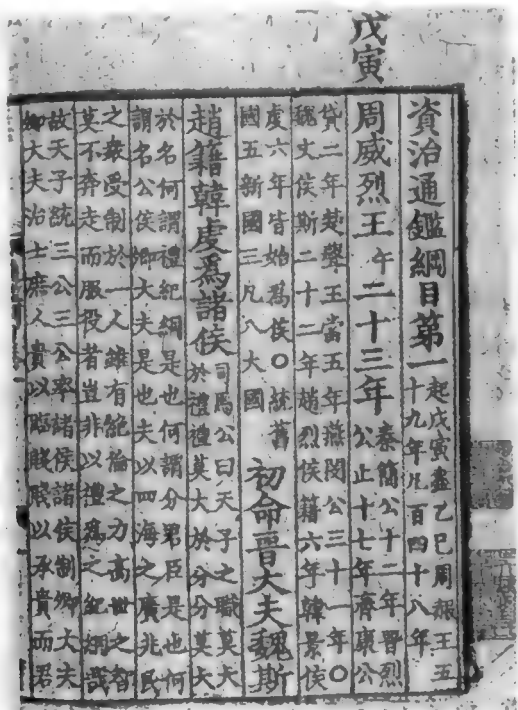 戊寅
資治通鑑綱目第一
起戊寅盡乙巳周赧王五
十九年凡百四十八年
周威烈王午二十三年
秦簡公十二年晉烈
公止十七年齊康公
貸二年楚聲王當五年燕閔公三十一年〇
魏文侯斯二十二年趙烈侯籍六年韓景侯
虔六年皆始爲侯〇統舊
國五新國三凡八大國
初命晉大夫魏斯
趙籍韓虔爲諸侯
司馬公曰天子之職莫大
於禮禮莫大於分分莫大
於名何謂禮紀綱是也何謂分君臣是也何
謂名公侯卿大夫是也夫以四海之廣兆民
之衆受制於一人雖有絶倫之力高世之智
莫不奔走而服役者豈非以禮爲之紀綱哉
故天子統三公三公率諸侯諸侯制卿大夫
卿大夫治士庶人貴以臨賤賤以承貴而君